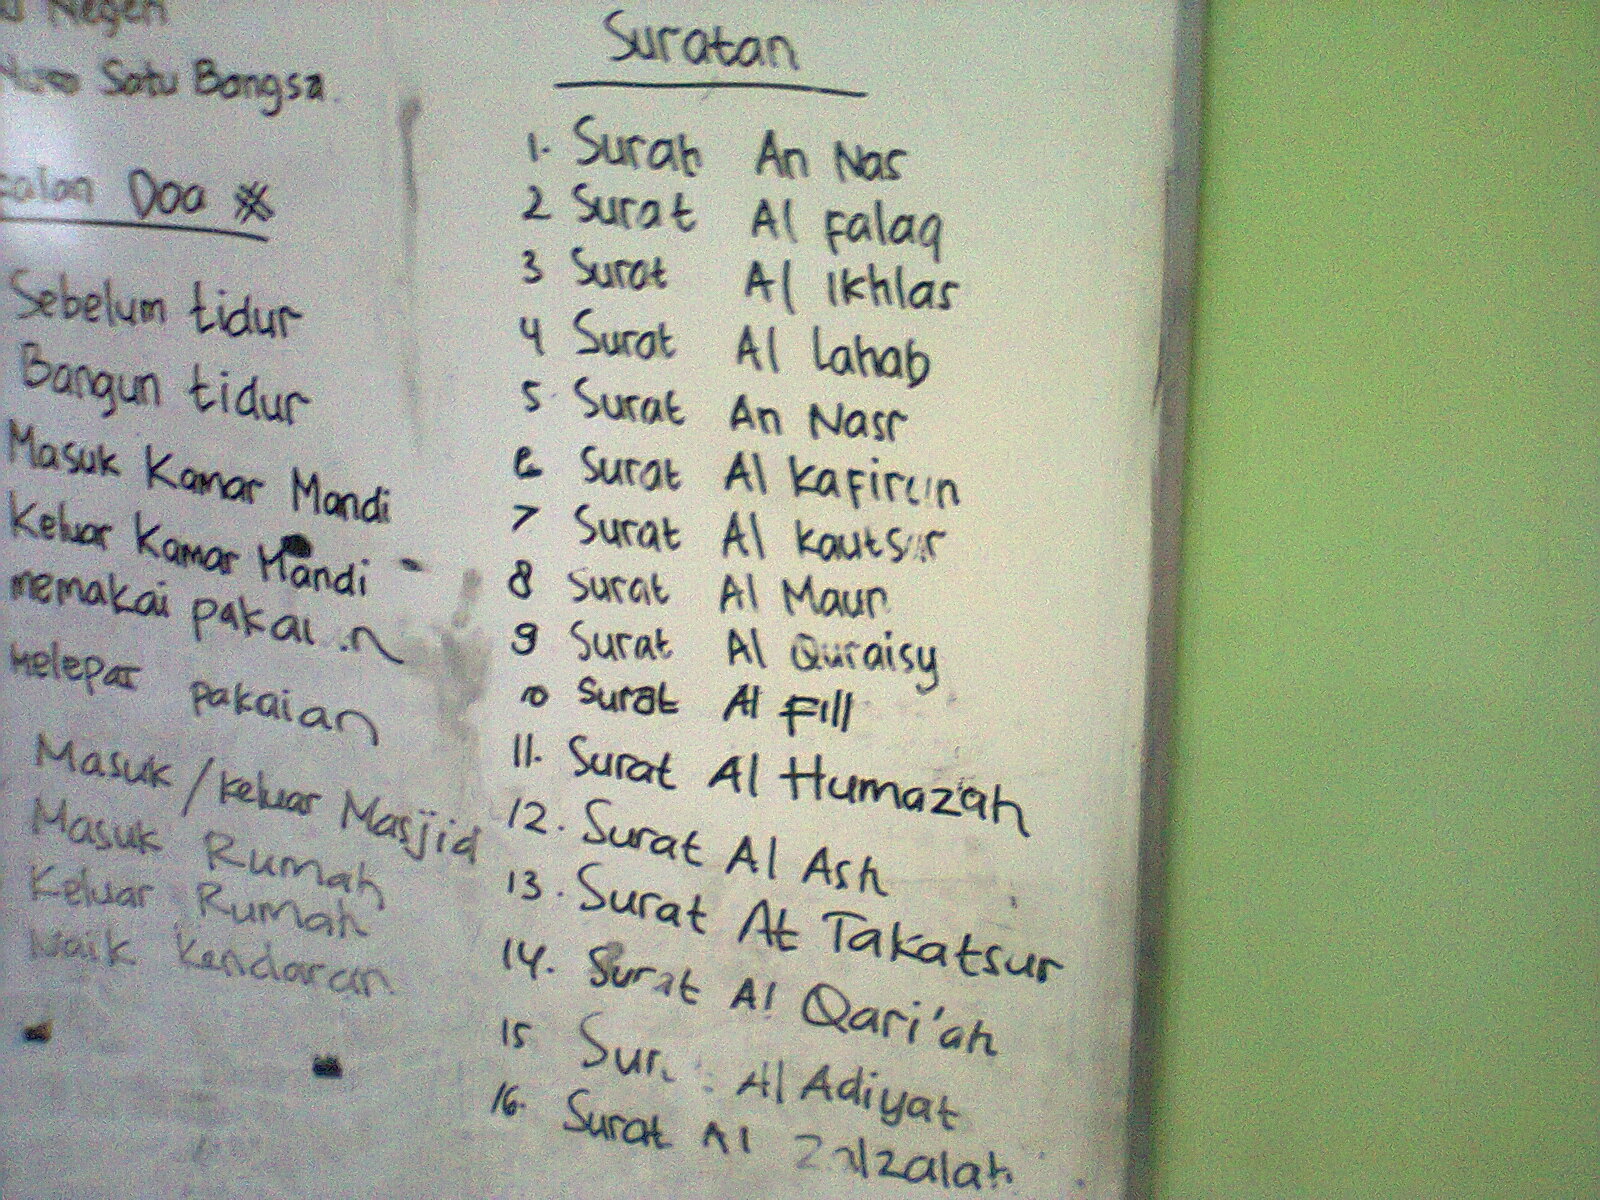 Negeri
Satu Bangsa
Doa #
Sebelum tidur
Bangun tidur
Masuk Kamar Mandi
Keluar Kamar Mandi
memakai pakaian
Melepas pakaian
Masuk / Keluar Masjid
Masuk Rumah
Keluar Rumah
Naik Kendaraan
Suratan
1. Surah An Nas
2 Surat Al Falaq
3 Surat Al Ikhlas
4 Surat Al Lahab
5 Surat An Nasr
6 Surat Al Kafirun
7 Surat Al Kautsar
8 Surat Al Maun
9 Surat Al Quraisy
10 Surat Al Fill
11. Surat Al Humazah
12. Surat Al Ash
13. Surat At Takatsur
14. Surat Al Qari'ah
15 Sur Al Adiyat
16. Surat Al Zalzalah